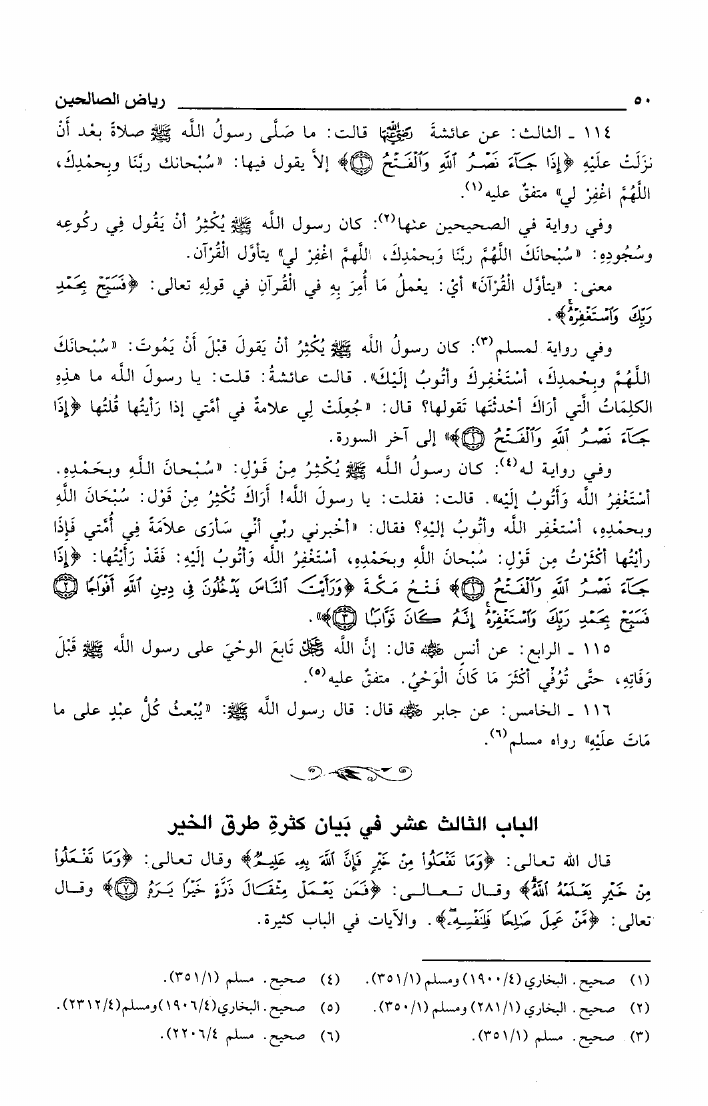 ٥٠ رياض الصالحين
١١٤ ـ الثالث: عن عائشةَ رضي الله عنها قالت: ما صَلَّى رسولُ الله ﷺ صلاةً بعد أَنْ
نزلَتْ علَيْهِ ﴿إِذَا جَآءَ نَصْرُ ٱللَّهِ وَٱلْفَتْحُ ١﴾ إلاَّ يقول فيها: «سُبْحانك ربَّنَا وبِحمْدِكَ،
اللهُمَّ اغْفِرْ لي» متفقٌ عليه(١).
وفي رواية في الصحيحين عنها(٢): كان رسول الله ﷺ يُكْثِرُ أنْ يَقُول فِي ركُوعِه
وسُجُودِهِ: «سُبْحَانَكَ اللهُمَّ ربَّنَا وَبحمْدِكَ، اللهُمَّ اغْفِر لي» يتأوَّل الْقُرآن.
معنى: «يتأوَّل الْقُرآنَ» أيْ: يعْملُ مَا أُمِرَ بِهِ في الْقُرآنِ في قولِهِ تعالى: ﴿فَسَبِّحْ بِحَمْدِ
رَبِّكَ وَٱسْتَغْفِرْهُ﴾.
وفي رواية لمسلم(٣): كان رسولُ الله ﷺ يُكْثِرُ أنْ يَقولَ قبْلَ أَنْ يَمُوتَ: «سُبْحَانَكَ
اللهُمَّ وبِحْمدِكَ، أسْتَغْفِركَ وأتُوبُ إلَيْكَ». قالت عائشةُ: قلت: يا رسولَ الله ما هذِهِ
الكلِمَاتُ الَّتي أرَاكَ أحْدثْتَها تَقولها؟ قال: «جُعِلَتْ لِي علامةٌ في أمَّتي إذا رَأيتُها قُلتُها ﴿إِذَا
جَآءَ نَصْرُ ٱللَّهِ وَٱلْفَتْحُ ١﴾» إلى آخر السورة.
وفي رواية له(٤): كان رسولُ الله ﷺ يُكْثِرُ مِنْ قَوْلِ: «سُبْحانَ اللهِ وبحَمْدِهِ.
أسْتَغْفِرُ الله وَأَتُوبُ إلَيْه». قالت: فقلت: يا رسول الله! أَرَاكَ تُكْثِرُ مِنْ قَوْل: سُبْحَانَ اللهِ
وبحمْدِه، أسْتغْفِر الله وأتُوبُ إليْهِ؟ فقال: «أخْبرني ربِّي أنِّي سأرَى علاَمَةً فِي أُمَّتي فَإِذَا
رأيْتُها أكْثَرْتُ مِن قَوْلِ: سُبْحانَ اللهِ وبحَمْدِهِ، أسْتَغْفِرُ الله وَأتُوبُ إلَيْهِ: فَقَدْ رَأَيْتُها: ﴿إِذَا
جَآءَ نَصْرُ ٱللَّهِ وَٱلْفَتْحُ ١﴾ فَتْحُ مَكَّةَ ﴿وَرَأَيْتَ ٱلنَّاسَ يَدْخُلُونَ فِى دِينِ ٱللَّهِ أَفْوَاجًا ٢
فَسَبِّحْ بِحَمْدِ رَبِّكَ وَٱسْتَغْفِرْهُ إِنَّهُۥ كَانَ تَوَّابًۢا ٣﴾».
١١٥ ـ الرابع: عن أنسٍ رضي الله عنه قال: إنَّ الله عز وجل تَابعَ الوحْيَ على رسول الله ﷺ قَبْلَ
وَفَاتِهِ، حتَّى تُوُفِّي أكْثَرَ مَا كَانَ الْوَحْيُ. متفقٌ عليه(٥).
١١٦ ـ الخامس: عن جابر رضي الله عنه قال: قال رسول الله ﷺ: «يُبْعثُ كُلُّ عبْدٍ على ما
مَاتَ علَيْهِ» رواه مسلم(٦).
الباب الثالث عشر في بَيان كثرةِ طرق الخير
قال الله تعالى: ﴿وَمَا تَفْعَلُوا۟ مِنْ خَيْرٍ فَإِنَّ ٱللَّهَ بِهِۦ عَلِيمٌ﴾ وقال تعالى: ﴿وَمَا تَفْعَلُوا۟
مِنْ خَيْرٍ يَعْلَمْهُ ٱللَّهُ﴾ وقال تعالى: ﴿فَمَن يَعْمَلْ مِثْقَالَ ذَرَّةٍ خَيْرًا يَرَهُۥ ٧﴾ وقال
تعالى: ﴿مَّنْ عَمِلَ صَٰلِحًا فَلِنَفْسِهِۦ﴾. والآيات في الباب كثيرة.
(١) صحيح. البخاري (١٩٠٠/٤) ومسلم (٣٥١/١). (٤) صحيح. مسلم (٣٥١/١).
(٢) صحيح. البخاري (٢٨١/١) ومسلم (٣٥٠/١). (٥) صحيح. البخاري (١٩٠٦/٤) ومسلم (٢٣١٢/٤).
(٣) صحيح. مسلم (٣٥١/١). (٦) صحيح. مسلم ٢٢٠٦/٤).